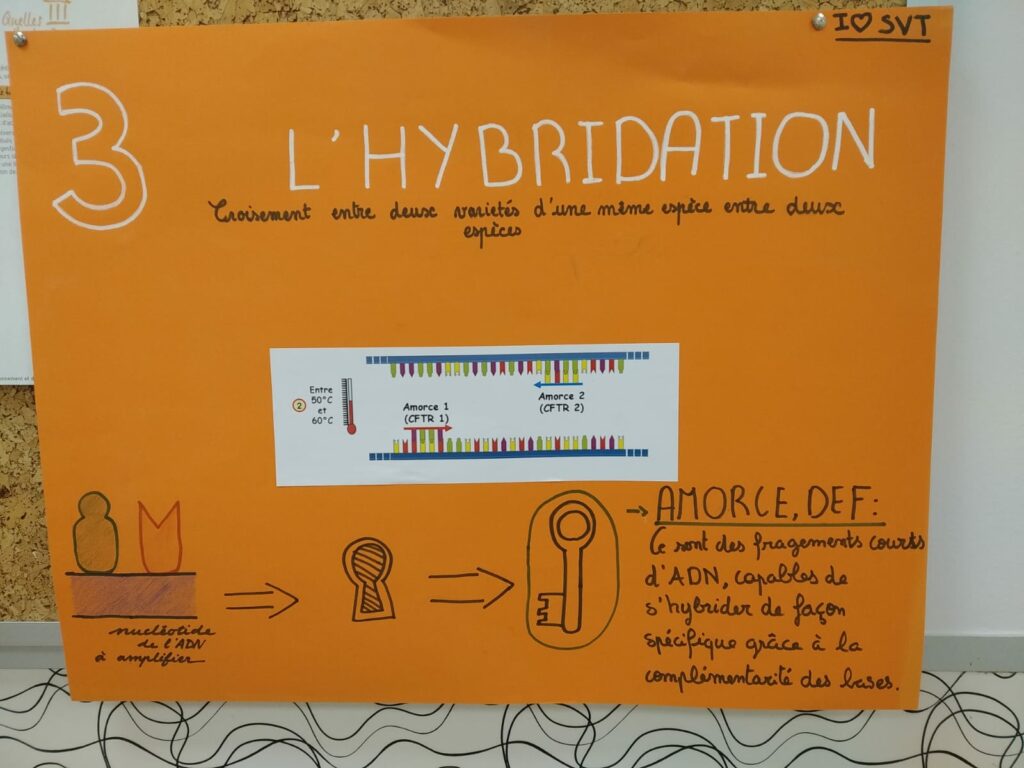 I ♡ SVT
Quelles
3
L'HYBRIDATION
Croisement entre deux varietés d'une même espèce entre deux
espèces
2
Entre
50°C
et
60°C
Amorce 1
(CFTR 1)
Amorce 2
(CFTR 2)
nucléotide
de l'ADN
à amplifier
→ AMORCE, DEF:
Ce sont des fragements courts
d'ADN, capables de
s'hybrider de façon
spécifique grâce à la
complémentarité des bases.